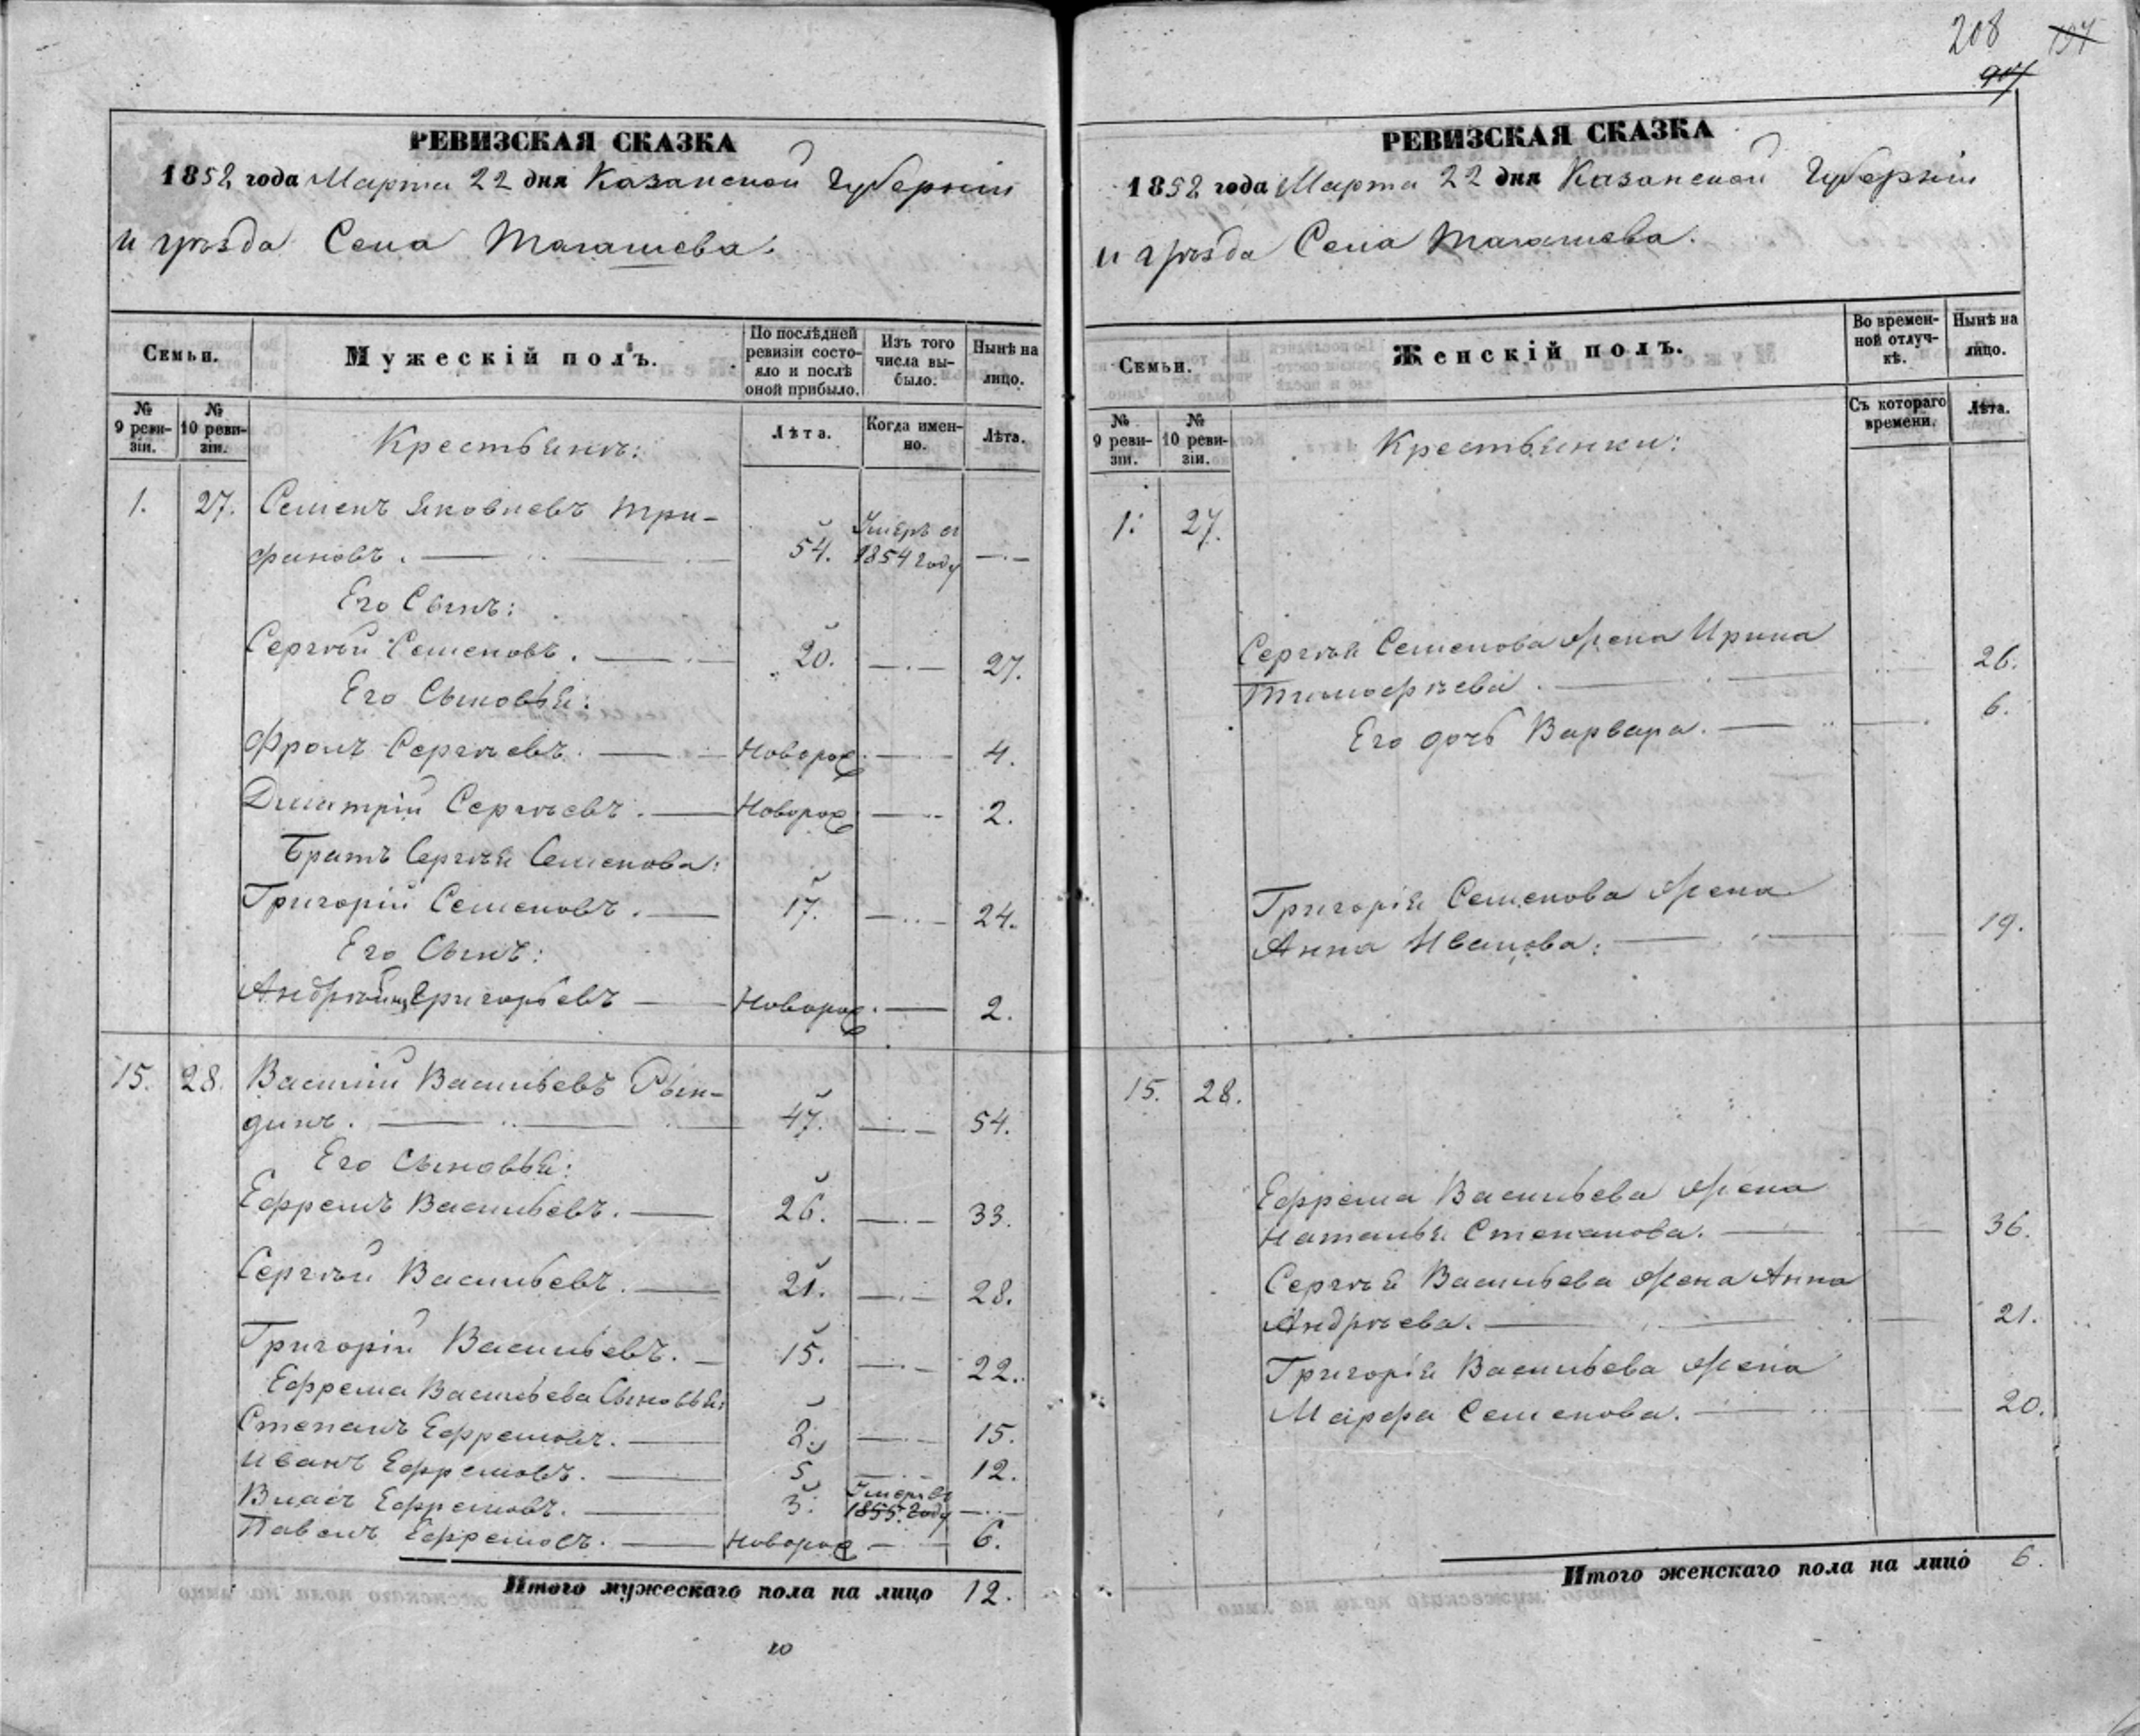 208 197
907
РЕВИЗСКАЯ СКАЗКА
1858 года Марта 22 дня Казанской Губерніи
и уѣзда Села Тагашева.
Семьи.
Мужескій полъ.
По послѣдней ревизіи состояло и послѣ оной прибыло.
Изъ того числа выбыло.
Нынѣ на лицо.
№ 9 ревизіи.
№ 10 ревизіи.
Крестьянъ:
Лѣта.
Когда именно.
Лѣта.
1. 27. Семенъ Яковлевъ Три-
фановъ. 54. Умеръ въ 1854 году
Его Сынъ:
Сергѣй Семеновъ. 20. 27.
Его Сыновья:
Фролъ Сергѣевъ. Новорож. 4.
Дмитрій Сергѣевъ. Новорож. 2.
Братъ Сергѣя Семенова:
Григорій Семеновъ. 17. 24.
Его Сынъ:
Андрей Григорьевъ Новорож. 2.
15. 28. Василій Васильевъ Рын-
динъ. 47. 54.
Его Сыновья:
Ефремъ Васильевъ. 26. 33.
Сергѣй Васильевъ. 21. 28.
Григорій Васильевъ. 15. 22.
Ефрема Васильева Сыновья:
Степанъ Ефремовъ. 8. 15.
Иванъ Ефремовъ. 5 12.
Власъ Ефремовъ. 3. Умеръ въ 1855 году
Павелъ Ефремовъ. Новорож 6.
Итого мужескаго пола на лицо 12.
10
РЕВИЗСКАЯ СКАЗКА
1858 года Марта 22 дня Казанской Губерніи
и уѣзда Села Тагашева.
Семьи.
Женскій полъ.
Во временной отлучкѣ.
Нынѣ на лицо.
№ 9 ревизіи.
№ 10 ревизіи.
Крестьянки:
Съ котораго времени.
Лѣта.
1. 27.
Сергѣя Семенова жена Ирина
Тимофѣева. 26.
Его дочь Варвара. 6.
Григорія Семенова жена
Анна Иванова. 19.
15. 28.
Ефрема Васильева жена
Наталья Степанова. 36.
Сергѣя Васильева жена Анна
Андрѣева. 21.
Григорія Васильева жена
Марфа Семенова. 20.
Итого женскаго пола на лицо 6.